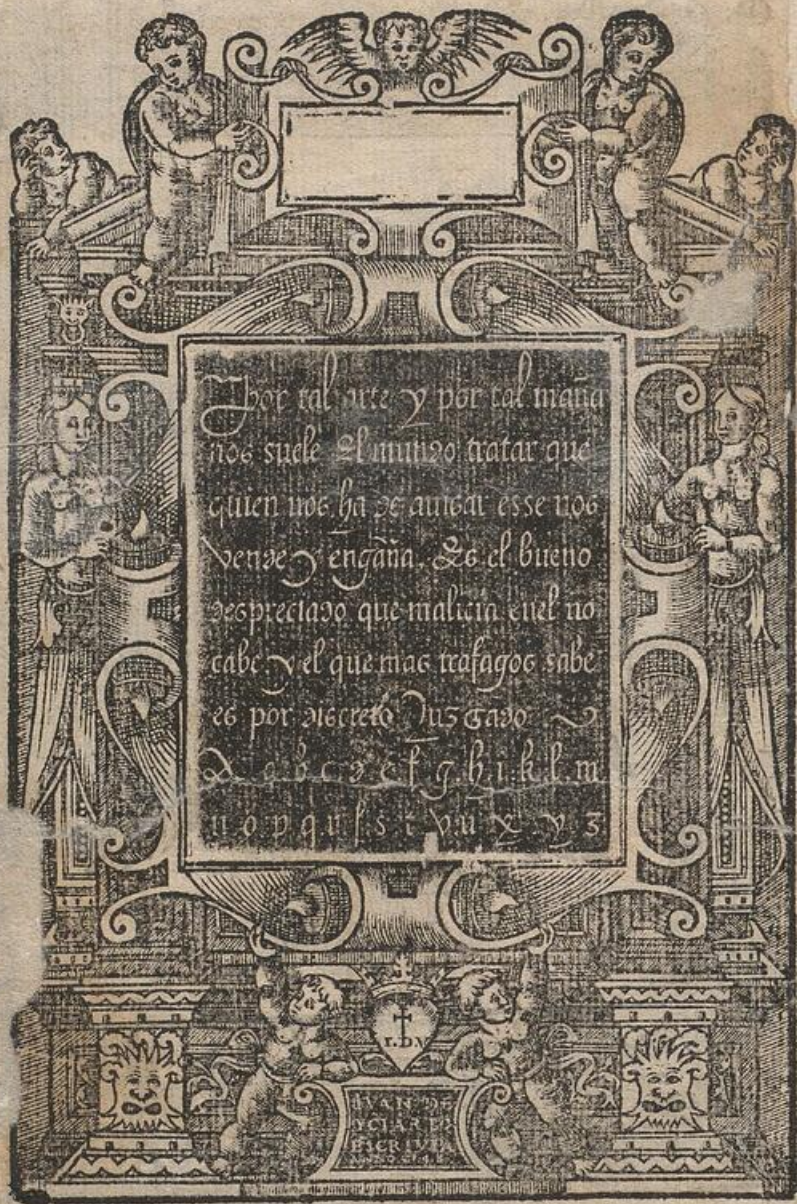 Por tal arte y por tal maña
nos suele El mundo tratar que
quien nos ha de auisar esse nos
vende y engaña. Es el bueno
despreciado que malicia enel no
cabe y el que mas trafagos sabe
es por discreto Juzgado
A a b c d e f g. h. i. k. l. m
n o p q. r ſ. s t v. u x. y. z
I. D. V
IVAN DE
YCIAR LO
ESCRIVIA